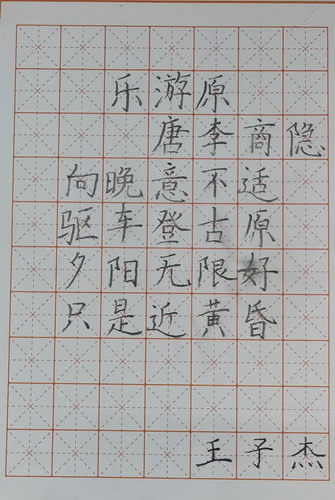 乐游原
唐李商隐
向晚意不适
驱车登古原
夕阳无限好
只是近黄昏
王子杰